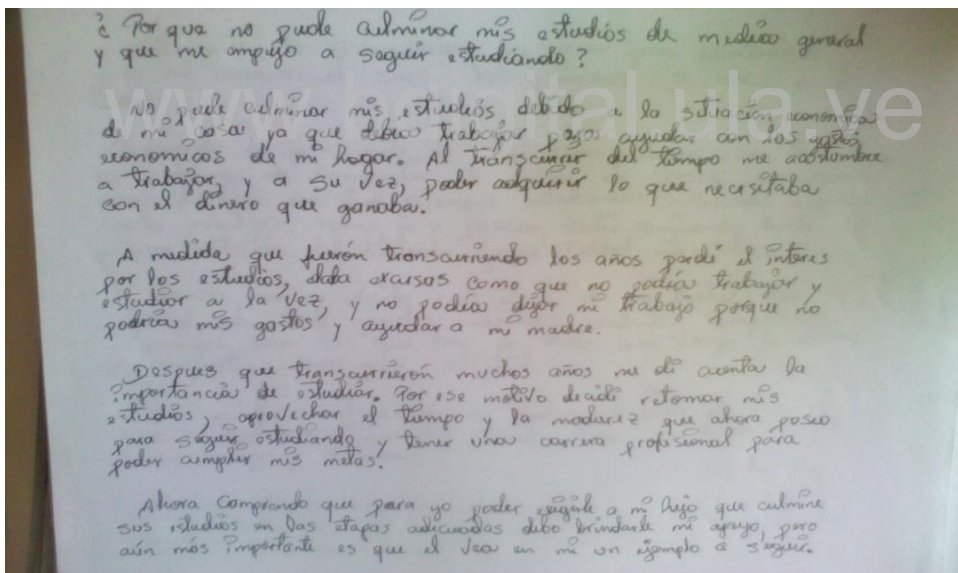 ¿ Por que no pude culminar mis estudios de media general
y que me ampujo a seguir estudiando?
No pude culminar mis estudios debido a la situación economica
de mi casa, ya que debia trabajar para ayudar con los gastos
economicos de mi hogar. Al transcurrir del tiempo me acostumbre
a trabajar, y a su vez, poder adquirir lo que necesitaba
con el dinero que ganaba.
A medida que fuerón transcurriendo los años perdí el interes
por los estudios, daba excusas como que no podía trabajar y
estudiar a la vez, y no podía dejar mi trabajo porque no
podría mis gastos y ayudar a mi madre.
Despues que transcurrierón muchos años me di cuenta la
importancia de estudiar. Por ese motivo decidi retomar mis
estudios, aprovechar el tiempo y la madurez que ahora poseo
para seguir estudiando y tener una carrera profesional para
poder cumplir mis metas.
Ahora comprendo que para yo poder exigirle a mi hijo que culmine
sus estudios en las etapas adecuadas debo brindarle mi apoyo, pero
aún más importante es que el vea en mi un ejemplo a seguir.
www.bdigital.ula.ve